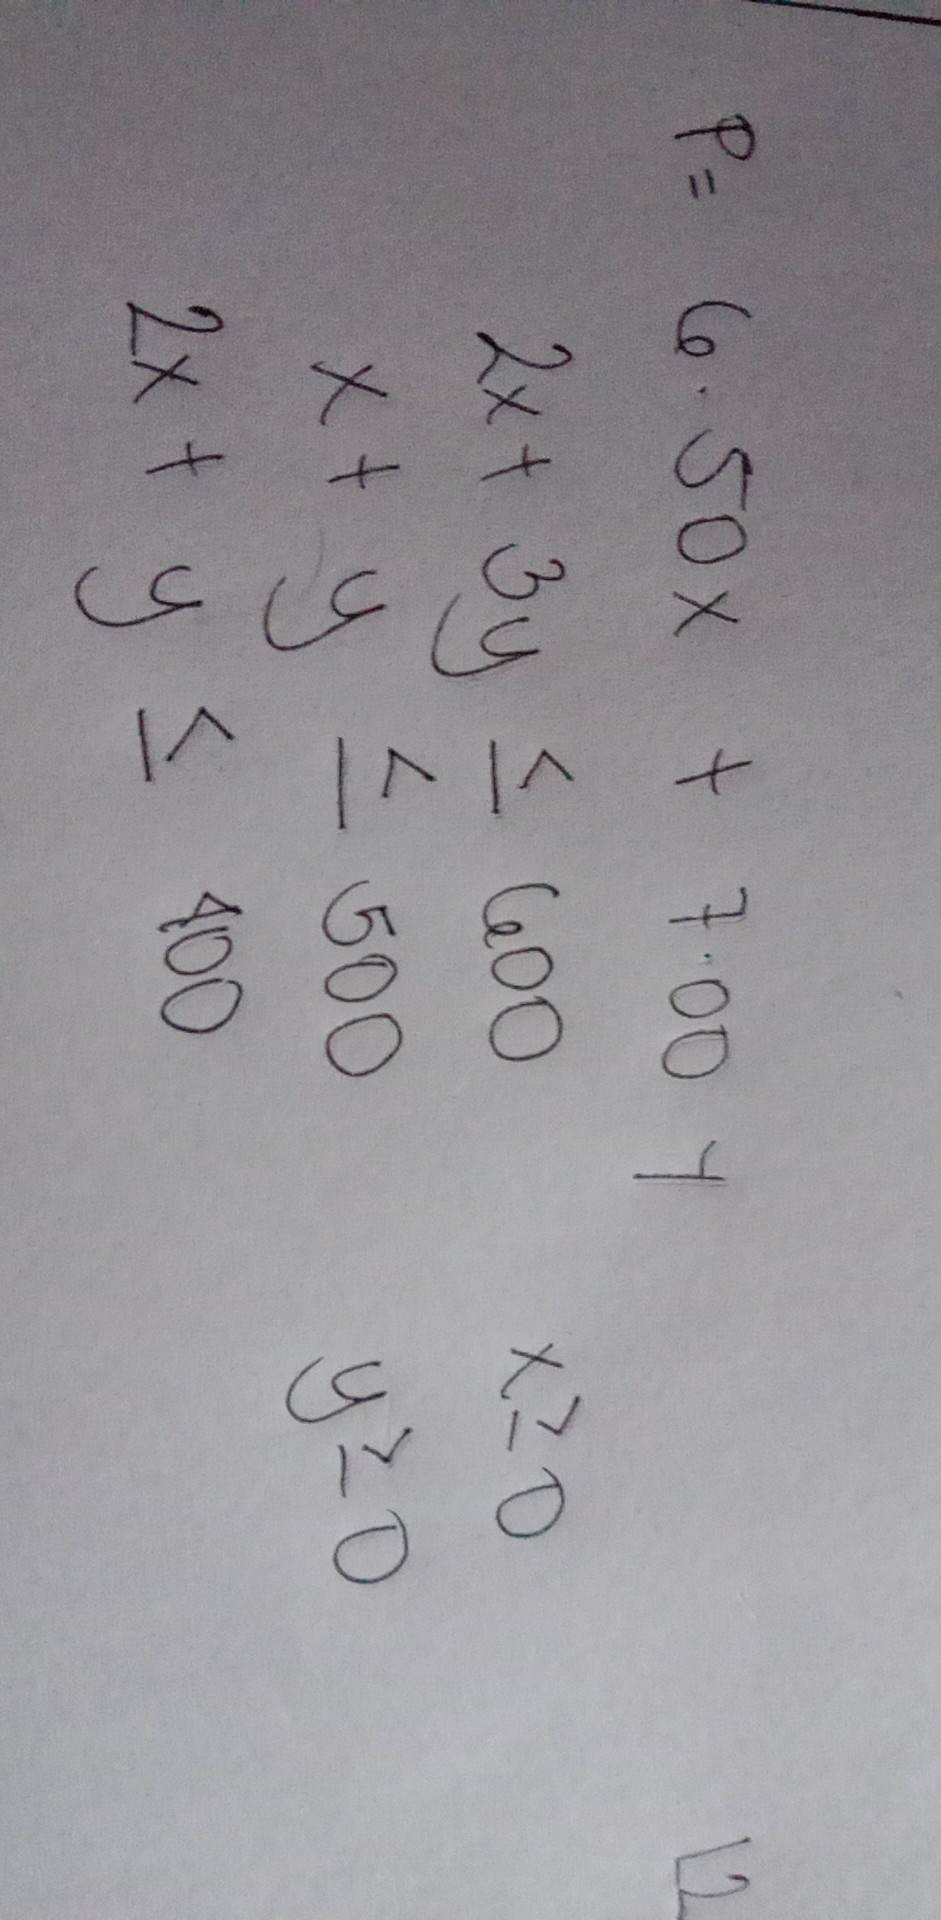 P= 6.50x + 7.00 Y
2x + 3y ≤ 600 x≥0
x + y ≤ 500 y≥0
2x + y ≤ 400